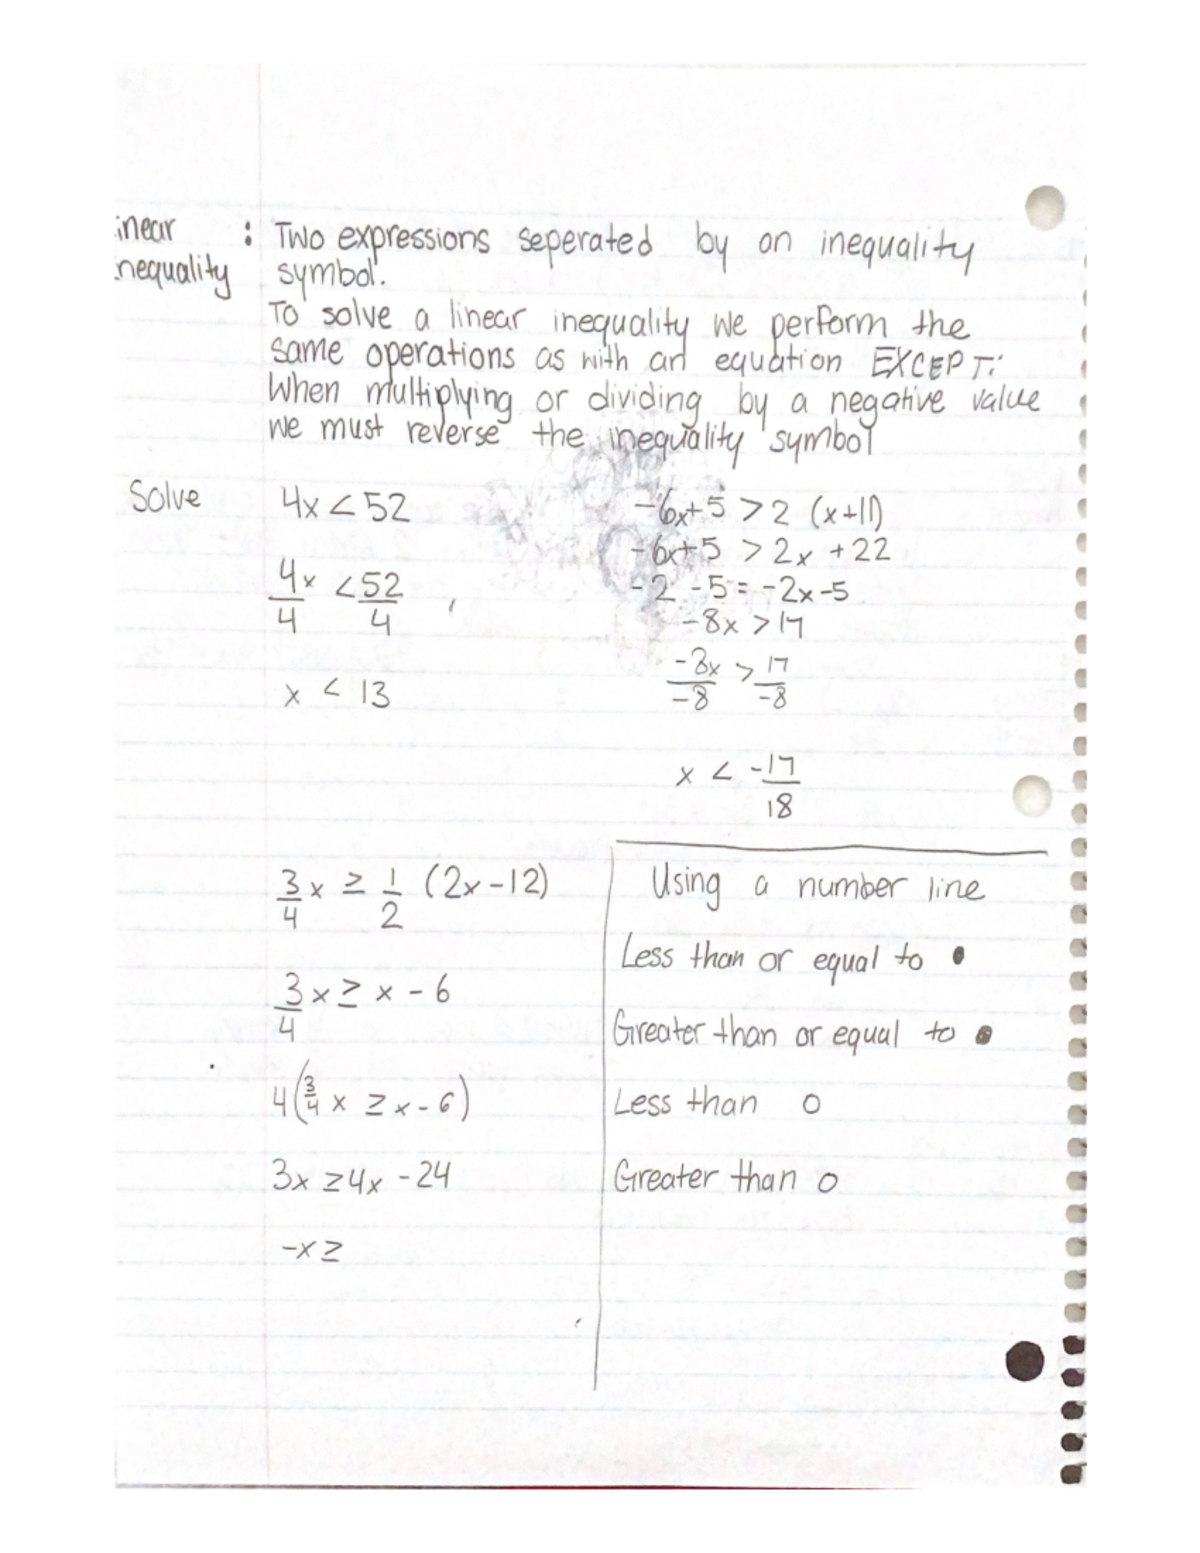 inear : Two expressions seperated by an inequality
nequality symbol.
To solve a linear inequality we perform the
same operations as with an equation EXCEPT:
When multiplying or dividing by a negative value
we must reverse the inequality symbol
Solve 4x < 52
4x/4 < 52/4
x < 13
-6x+5 > 2 (x+11)
-6x+5 > 2x +22
-2 -5 = -2x-5
-8x > 17
-8x/-8 > 17/-8
x < -17/18
3/4 x ≥ 1/2 (2x-12)
3/4 x ≥ x - 6
4(3/4 x ≥ x - 6)
3x ≥ 4x - 24
-x ≥
Using a number line
Less than or equal to ●
Greater than or equal to ●
Less than ○
Greater than ○